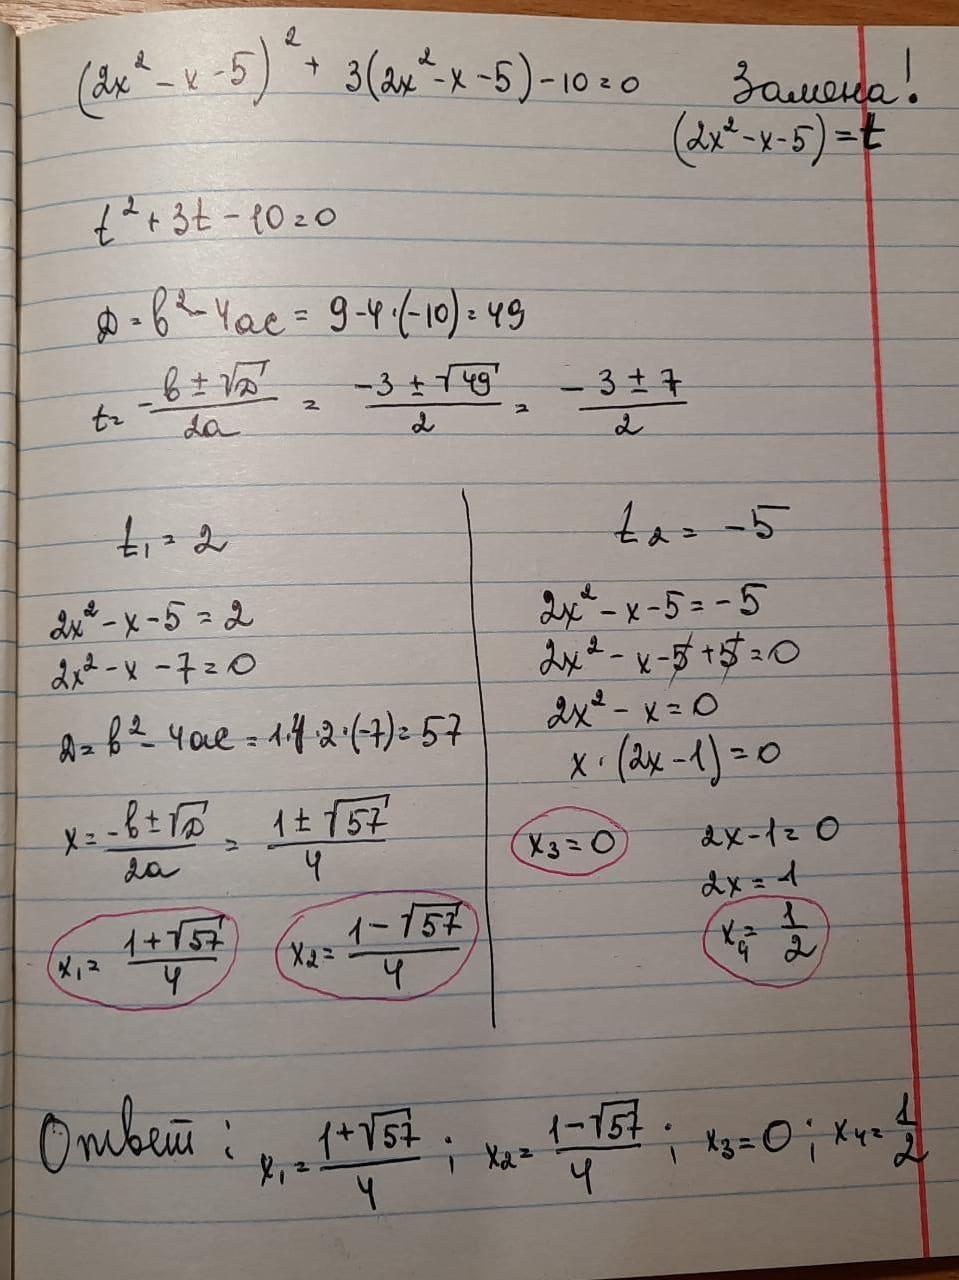 (2x² - x - 5)² + 3(2x² - x - 5) - 10 = 0
Замена!
(2x² - x - 5) = t
t² + 3t - 10 = 0
D = b² - 4ac = 9 - 4·(-10) = 49
t = (-b ± √D)/2a = (-3 ± √49)/2 = (-3 ± 7)/2
t₁ = 2
2x² - x - 5 = 2
2x² - x - 7 = 0
D = b² - 4ac = 1·4·2·(-7) = 57
x = (-b ± √D)/2a = (1 ± √57)/4
x₁ = (1 + √57)/4
x₂ = (1 - √57)/4
t₂ = -5
2x² - x - 5 = -5
2x² - x - 5 + 5 = 0
2x² - x = 0
x · (2x - 1) = 0
x₃ = 0
2x - 1 = 0
2x = 1
x₄ = 1/2
Ответ: x₁ = (1 + √57)/4 ; x₂ = (1 - √57)/4 ; x₃ = 0 ; x₄ = 1/2